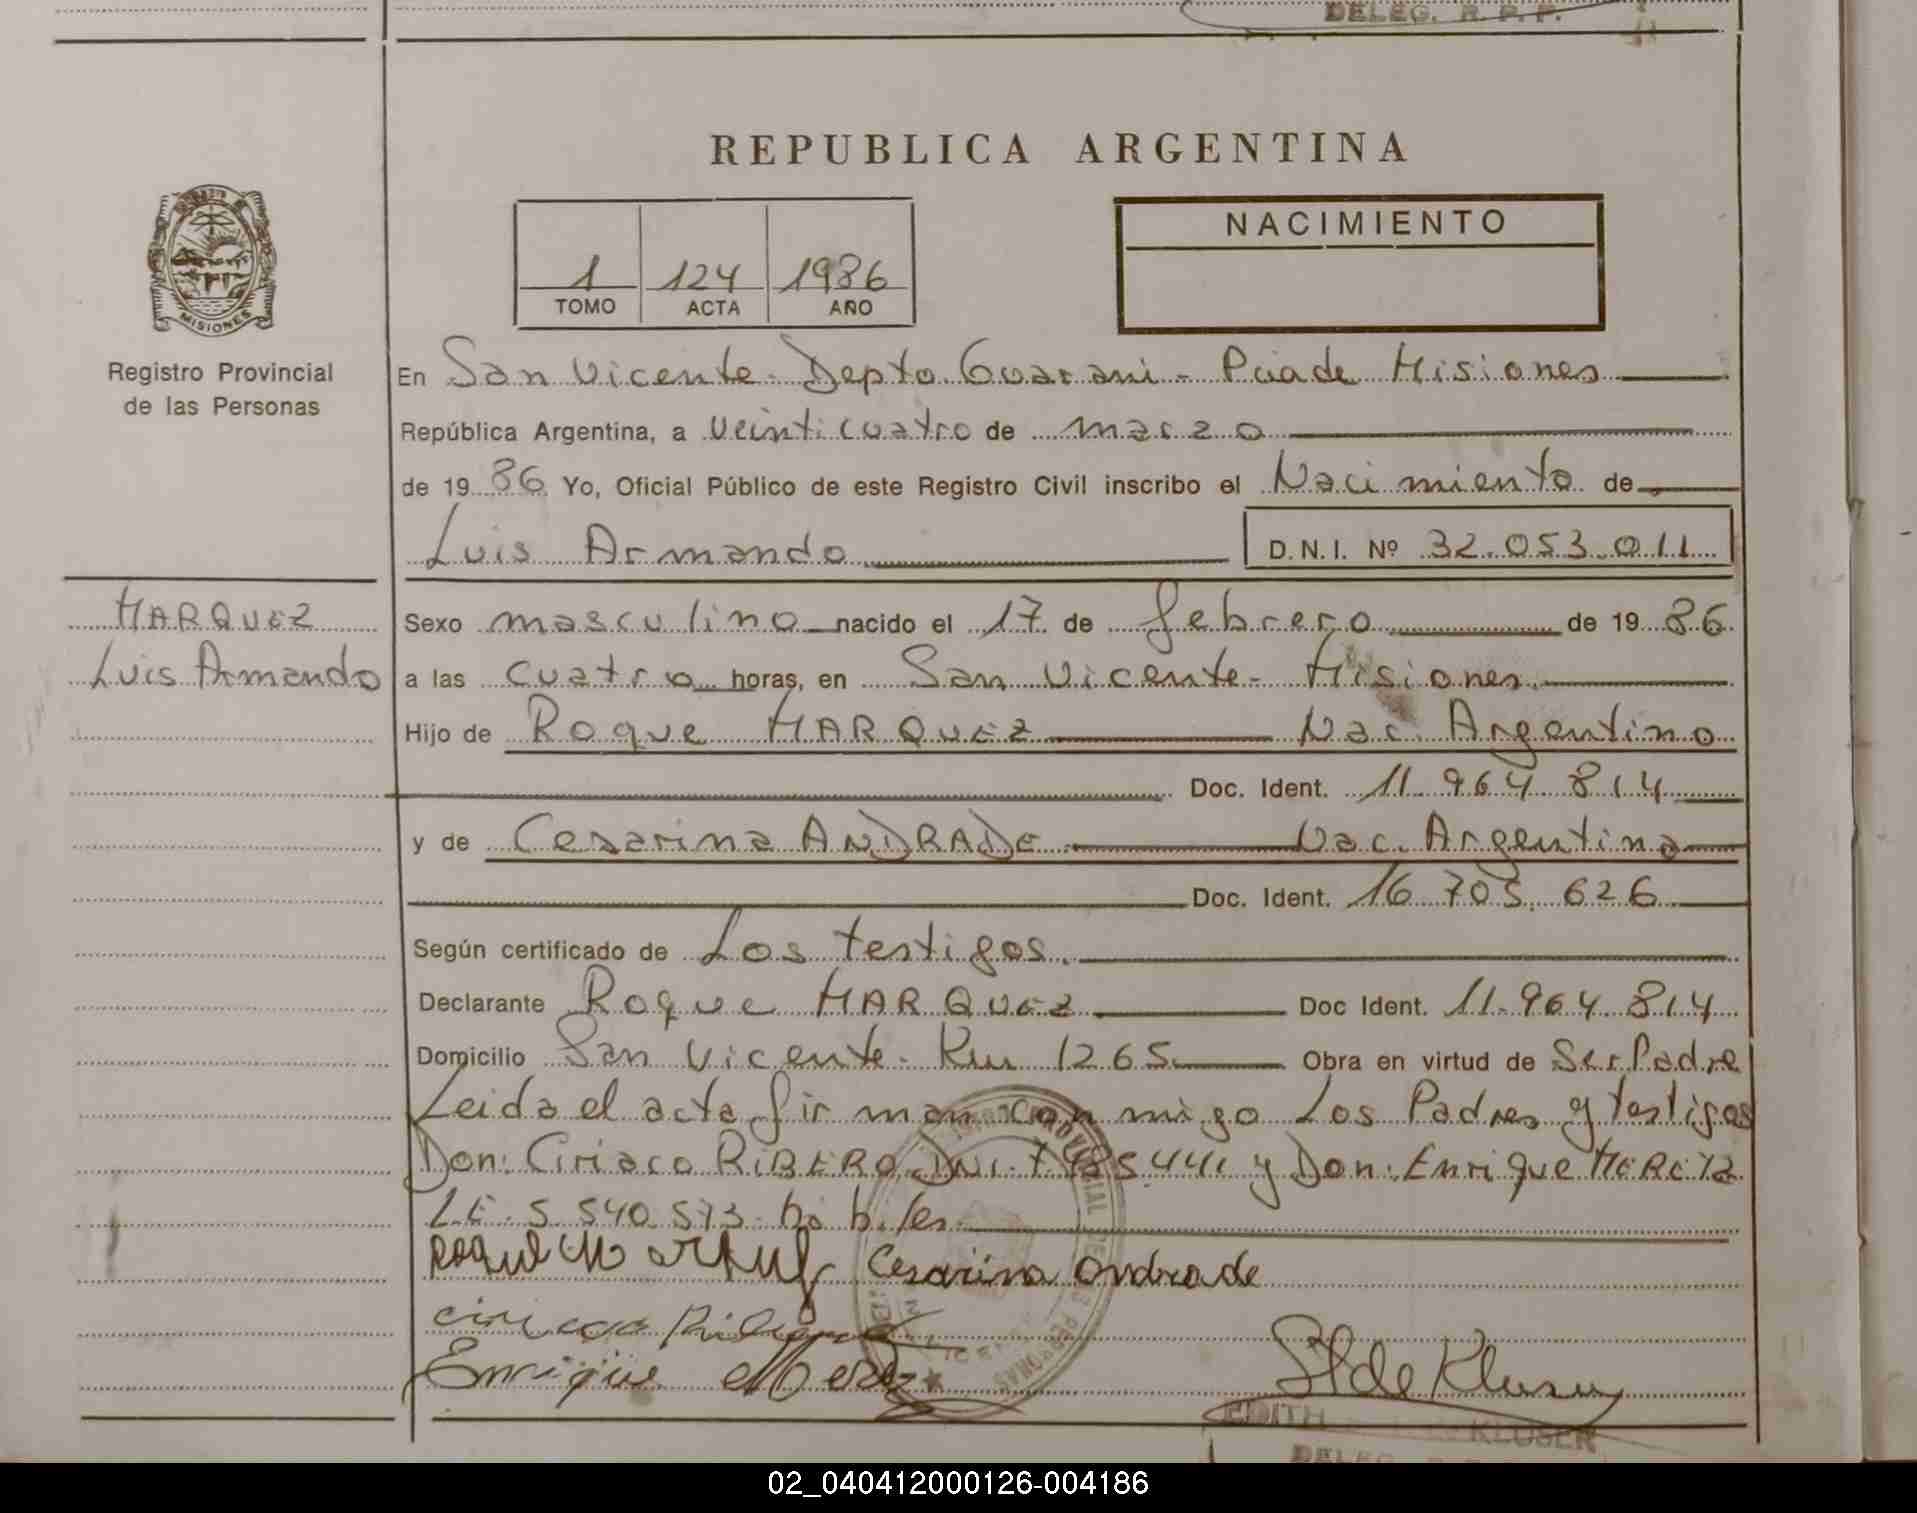 DELEG. R. P. P.
REPUBLICA ARGENTINA
NACIMIENTO
1 124 1986
TOMO ACTA AÑO
MISIONES
Registro Provincial
de las Personas
En San Vicente - Depto. Guarani - Pcia de Misiones
República Argentina, a veinticuatro de marzo
de 1986 Yo, Oficial Público de este Registro Civil inscribo el Nacimiento de
Luis Armando D.N.I. Nº 32.053.011
MARQUEZ
Luis Armando
Sexo masculino nacido el 17 de febrero de 1986
a las cuatro horas, en San Vicente - Misiones.
Hijo de Roque MARQUEZ Nac. Argentino
Doc. Ident. 11.964.814
y de Cesarina ANDRADE Nac. Argentina
Doc. Ident. 16.705.626
Según certificado de Los testigos.
Declarante Roque MARQUEZ Doc Ident. 11.964.814
Domicilio San Vicente - Km 1265 Obra en virtud de Ser Padre
Leida el acta firman conmigo Los Padres y testigos
Don: Ciriaco RIBERO DNI. y Don: Enrique
L.E. 5.540.573
Cesarina Andrade
Enrique
de Kluser
EDITH de KLUSER
DELEG.
02_040412000126-004186